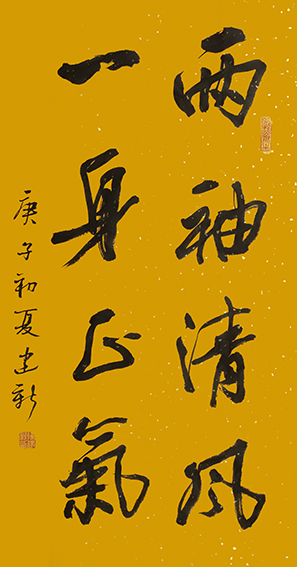 两袖清风
一身正氣
庚子初夏建新